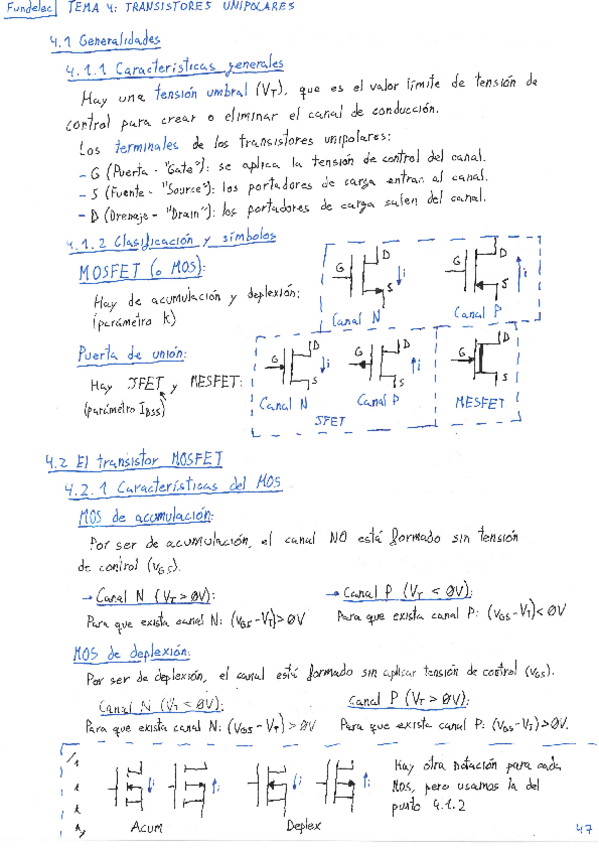 Fundelec TEMA 4: TRANSISTORES UNIPOLARES
4.1 Generalidades
4.1.1 Características generales
Hay una tensión umbral (VT), que es el valor límite de tensión de
control para crear o eliminar el canal de conducción.
Los terminales de los transistores unipolares:
- G (Puerta - "Gate"): se aplica la tensión de control del canal.
- S (Fuente - "Source"): los portadores de carga entran al canal.
- D (Drenaje - "Drain"): los portadores de carga salen del canal.
4.1.2 Clasificación y símbolos
MOSFET (o MOS):
Hay de acumulación y deplexión:
(parámetro K)
G D S i
Canal N
G D S i
Canal P
Puerta de unión:
Hay JFET y MESFET:
(parámetro IDSS)
G D S i
Canal N
G D S i
Canal P
JFET
G D S
MESFET
4.2 El transistor MOSFET
4.2.1 Características del MOS
MOS de acumulación:
Por ser de acumulación, el canal NO está formado sin tensión
de control (vGS).
→ Canal N (VT > 0V):
→ Canal P (VT < 0V):
Para que exista canal N: (vGS - VT) > 0V
Para que exista canal P: (vGS - VT) < 0V
MOS de deplexión:
Por ser de deplexión, el canal está formado sin aplicar tensión de control (vGS).
Canal N (VT < 0V):
Canal P (VT > 0V):
Para que exista canal N: (vGS - VT) > 0V
Para que exista canal P: (vGS - VT) > 0V.
i i i i
Acum
Deplex
Hay otra notación para cada
MOS, pero usamos la del
punto 4.1.2
47